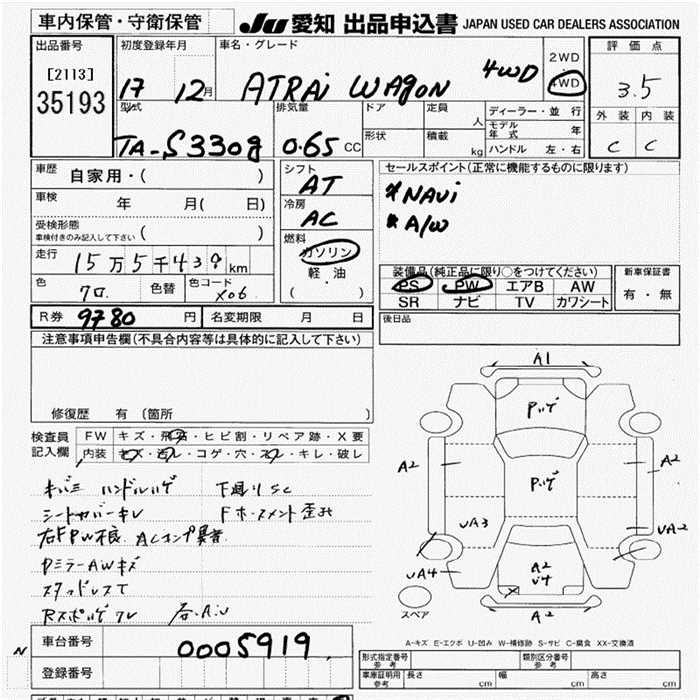 車内保管・守衛保管
JU 愛知 出品申込書 JAPAN USED CAR DEALERS ASSOCIATION
出品番号
[2113]
35193
初度登録年月
17 12月
車名・グレード
ATRAi WAGON 4WD
2WD
4WD
評価点
3.5
外装 内装
C C
型式
TA-S330g
排気量
0.65 CC
ドア
定員
人
形状
積載
kg
ディーラー・並行
モデル年式 年
ハンドル 左・右
車歴
自家用・( )
車検
年 月( 日)
受検形態
車検付きのみ記入して下さい ( )
走行
15万5千439km
色
クロ
色替
色コード
X06
シフト
AT
冷房
AC
燃料
ガソリン
軽・油
( )
セールスポイント(正常に機能するものに限ります)
*NAVi
*A/W
装備品(純正品に限り○をつけてください)
PS PW エアB AW
SR ナビ TV カワシート
新車保証書
有・無
R券 9780円 名変期限 月 日
後日品
注意事項申告欄(不具合内容等は具体的に記入して下さい)
修復歴 有(箇所 )
検査員記入欄
FW キズ・飛石・ヒビ割・リペア跡・X要
内装 キズ・汚レ・コゲ・穴・スレ・キレ・破レ
キバミ ハンドルハゲ 下廻りSC
シートカバーキレ Fホースメント歪み
右FPW不良 ACコンプ異音
Dミラー AWキズ
スタッドレスT
車台番号 0005919
登録番号
N
A1
Pハゲ
Pハゲ
A2
A2
UA3
UA2
UA4
A2
U4
A2
スペア
A-キズ E-エクボ U-凹み W-補修跡 S-サビ C-腐食 XX-交換済
形式指定番号 参考
類別区分番号 参考
車庫証明用 参考
長さ cm
幅 cm
高さ cm